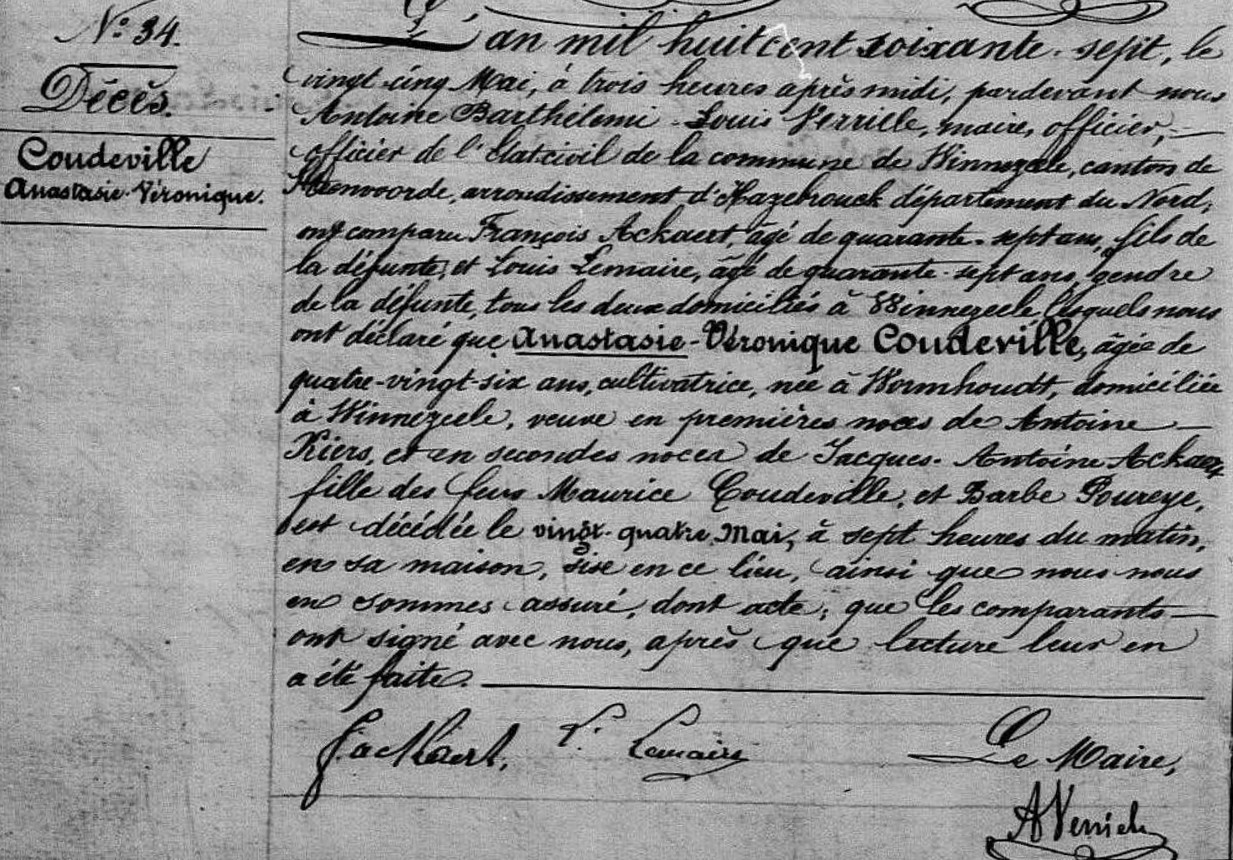 N.° 34.
Décès.
Coudeville
Anastasie-Véronique.
L'an mil huit cent soixante-sept, le
vingt-cinq Mai, à trois heures après midi, pardevant nous
Antoine Barthélemi-Louis Verriele, maire, officier,
officier de l'Etat civil de la commune de Winnezeele, canton de
Steenvoorde, arrondissement d'Hazebrouck département du Nord,
ont comparu François Ackaert, âgé de quarante-sept ans, fils de
la défunte, et Louis Lemaire, âgé de quarante-sept ans, gendre
de la défunte, tous les deux domiciliés à Winnezeele, lesquels nous
ont déclaré que Anastasie-Véronique Coudeville, âgée de
quatre-vingt-six ans, cultivatrice, née à Wormhoudt, domiciliée
à Winnezeele, veuve en premières noces de Antoine
Kiers, et en secondes noces de Jacques-Antoine Ackaert
fille des feus Maurice Coudeville, et Barbe Poureye,
est décédée le vingt-quatre Mai, à sept heures du matin,
en sa maison, sise en ce lieu, ainsi que nous nous
en sommes assuré, dont acte, que les comparants
ont signé avec nous, après que lecture leur en
a été faite.
f. ackaert, L. Lemaire Le Maire,
A Verriele